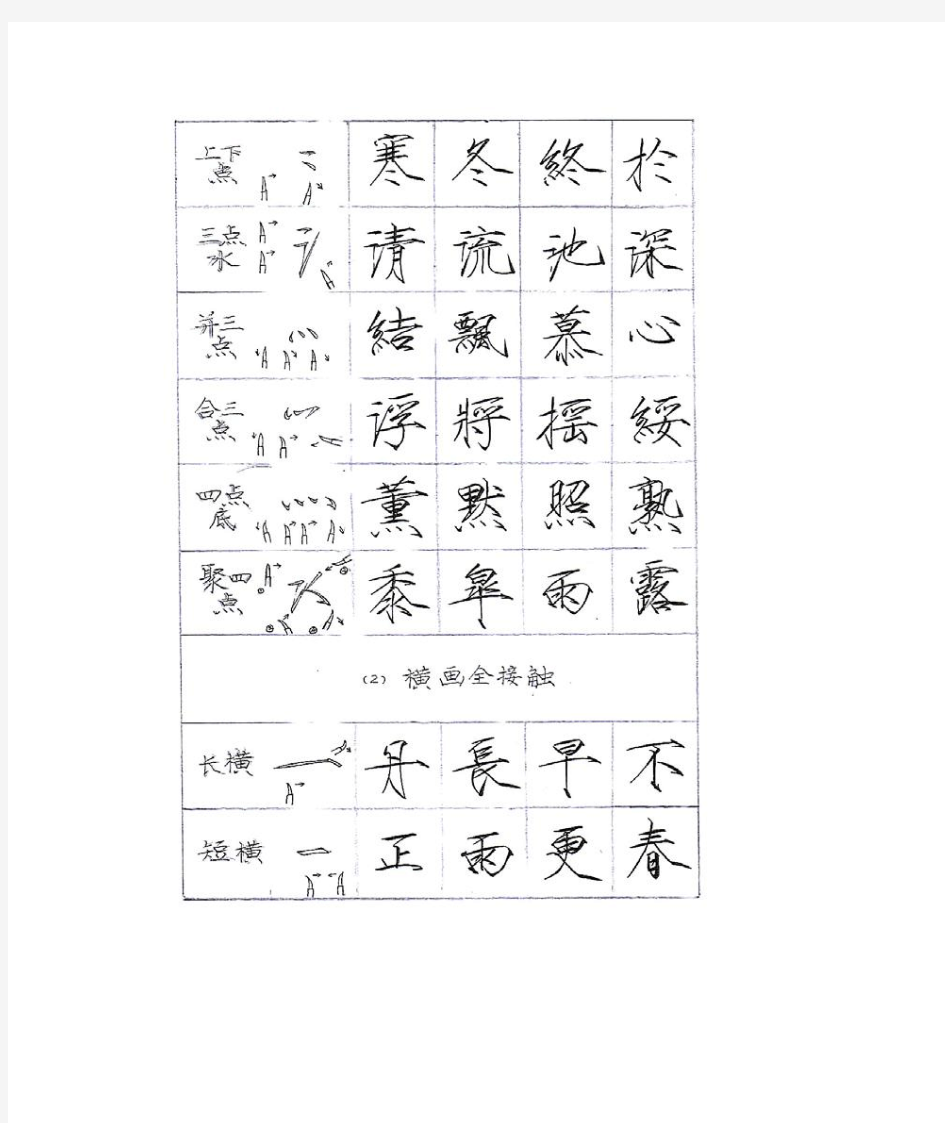 上下点 寒 冬 終 於
三点水 请 流 池 深
并三点 結 飄 慕 心
合三点 浮 將 摇 綏
四点底 薰 默 照 熟
聚四点 黍 皐 雨 露
(2) 横画全接触
长横 丹 長 早 不
短横 正 雨 更 春